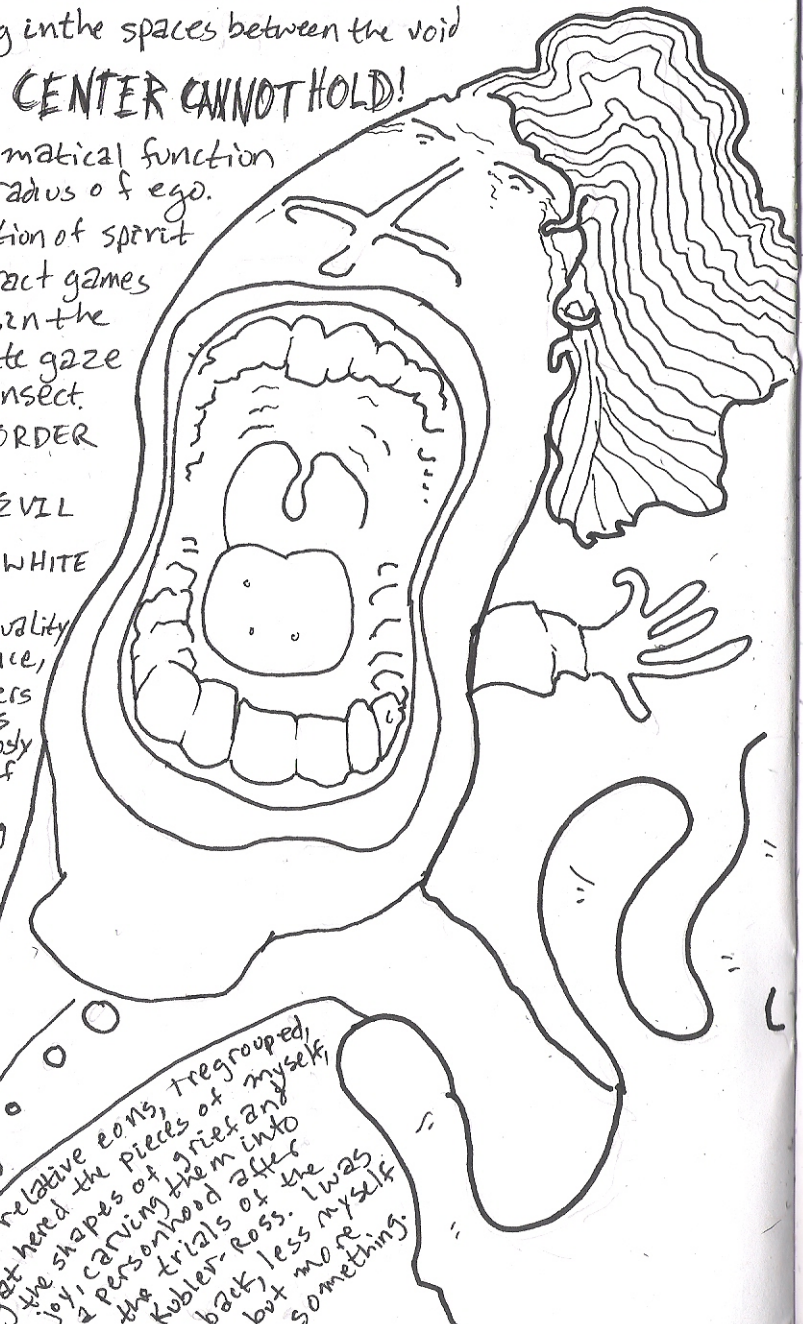 g in the spaces between the void
CENTER CANNOT HOLD!
matical function
radius of ego.
tion of spirit
ract games
in the
te gaze
nsect.
ORDER
EVIL
WHITE
uality
ice,
ers
s
osly
f
relative eons, I regrouped,
at hered the pieces of myself,
the shapes of grief and
joy, carving them into
a personhood after
the trials of the
Kubler-Ross. I was
back, less myself
but more
something.